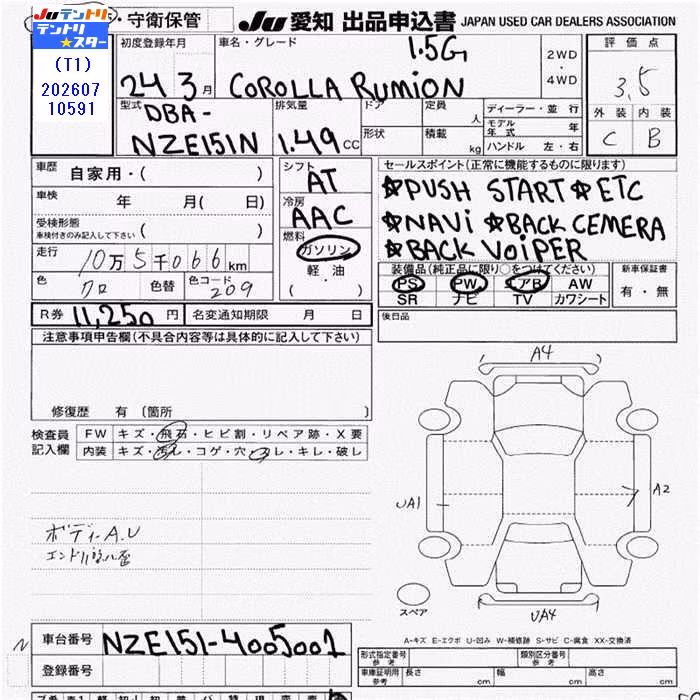 テントリ・守衛保管
JU テントリ
テントリ★スター
(T1)
202607
10591
JU 愛知 出品申込書 JAPAN USED CAR DEALERS ASSOCIATION
初度登録年月
24 3月
車名・グレード
1.5G
COROLLA RUMION
2WD
・
4WD
評価点
3.5
外装 内装
C B
型式
DBA-
NZE151N
排気量
1.49 CC
ドア
形状
定員
人
積載
kg
ディーラー・並行
モデル年式 年
ハンドル 左・右
車歴 自家用・( )
車検 年 月( 日)
受検形態
車検付きのみ記入して下さい ( )
走行 10万5千066km
色 クロ 色替 色コード 209
シフト
AT
冷房
AAC
燃料
ガソリン
軽・油
( )
セールスポイント(正常に機能するものに限ります)
☆PUSH START ☆ETC
☆NAVi ☆BACK CEMERA
☆BACK VOiPER
装備品(純正品に限り○をつけてください)
PS PW エアB AW
SR ナビ TV カワシート
新車保証書
有・無
R券 11,250円 名変通知期限 月 日
後日品
注意事項申告欄(不具合内容等は具体的に記入して下さい)
修復歴 有〔箇所 〕
検査員
記入欄
FW キズ・飛石・ヒビ割・リペア跡・X要
内装 キズ・汚レ・コゲ・穴・スレ・キレ・破レ
ボディーA.U
A4
UA1
A2
UA4
スペア
A-キズ E-エクボ U-凹み W-補修跡 S-サビ C-腐食 XX-交換済
N
車台番号 NZE151-4005001
登録番号
形式指定番号
参考
類別区分番号
参考
車庫証明用
参考
長さ cm 幅 cm 高さ cm